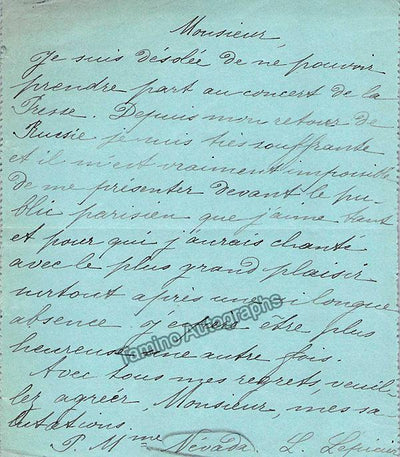 Monsieur,
Je suis désolée de ne pouvoir
prendre part au concert de la
Presse. Depuis mon retour de
Russie je suis très souffrante
et il m'est vraiment impossible
de me présenter devant le pu-
blic parisien que j'aime tant
et pour qui j'aurais chanté
avec le plus grand plaisir
surtout après une si longue
absence. J'espère être plus
heureuse une autre fois.
Avec tous mes regrets, veuil-
lez agréer, Monsieur, mes sa-
lutations.
P. Mme Névada. L.
Tamino Autographs